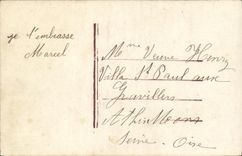 je t'embrasse
Marcel
Mme Veuve Henry
Villa St Paul aux
Gravilliers
Athis Mons
Seine - Oise